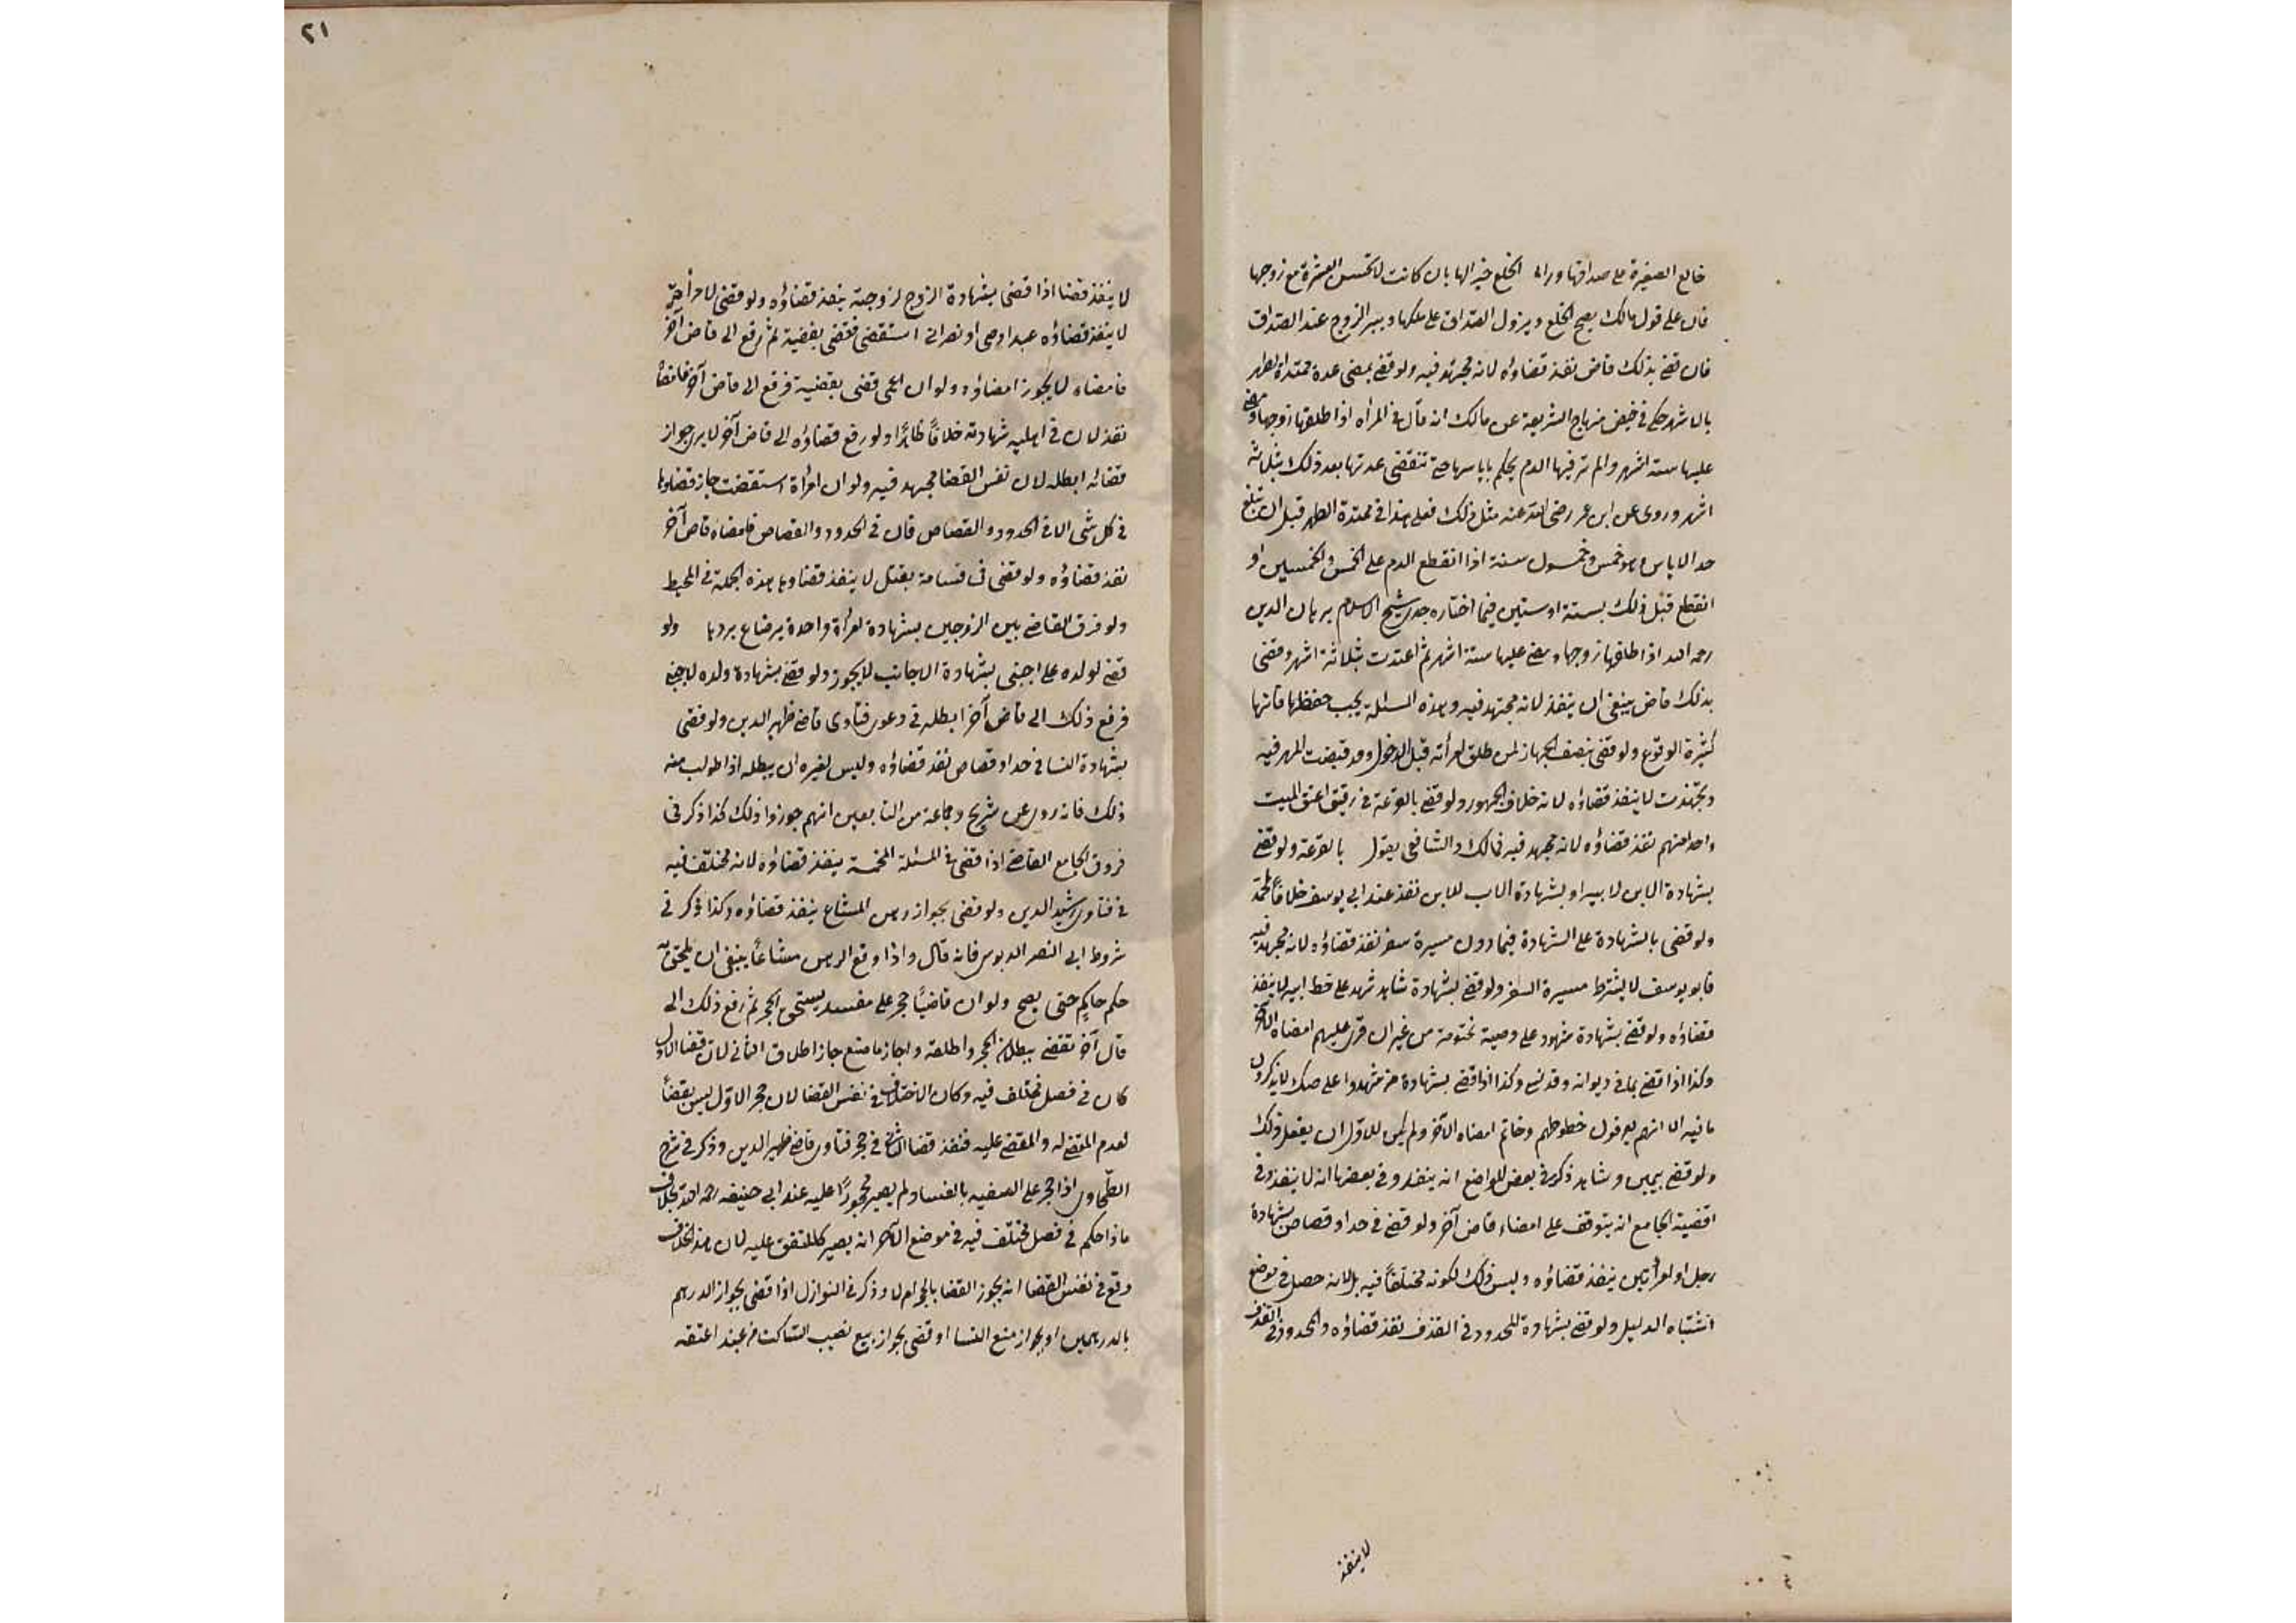 خالع الصغيرة على صداقها وراى الخلع خيرا لها بان كانت لا تحسن العشرة مع زوجها
فان على قول مالك يصح الخلع ويزول الصداق عن ملكها ويبرا الزوج عند الصداق
فان قضى بذلك قاض نفذ قضاؤه لانه مجتهد فيه ولو قضى بمضى عدة ممتدة الطهر
بالاشهر حكى فى منهاج الشريعة عن مالك انه قال فى المراه اذا طلقها زوجها ومضى
عليها ستة اشهر ولم تر فيها الدم يحكم باياسها حتى تنقضى عدتها بعد ذلك بثلاثة
اشهر وروى عن ابن عمر رضى الله عنه مثل ذلك فعلى هذا فى ممتدة الطهر قبل ان تبلغ
حد الاياس وهو خمس وخمسون سنة اذا انقطع الدم على الخمس والخمسين او
انقطع قبل ذلك بستة او ستين فيما اختاره جدى شيخ الاسلام برهان الدين
رحمه الله اذا طلقها زوجها ومضى عليها ستة اشهر ثم اعتدت بثلاثة اشهر وقضى
بذلك قاض ينبغى ان ينفذ لانه مجتهد فيه وهذه المسئلة يجب حفظها فانها
كثيرة الوقوع ولو قضى بنصف الجهاز لمن طلق امرأته قبل الدخول وقد قبضت المهر فيه
وتجهزت لا ينفذ قضاؤه لانه خلاف الجمهور ولو قضى بالقرعة فى رقيق اعتق الميت
واحدا منهم نفذ قضاؤه لانه مجتهد فيه فمالك والشافعى يقول بالقرعة ولو قضى
بشهادة الابن لابيه او بشهادة الاب للابن نفذ عند ابى يوسف خلافاً لمحمد
ولو قضى بالشهادة على الشهادة فيما دون مسيرة سفر نفذ قضاؤه لانه مجتهد فيه
فابو يوسف لا يشترط مسيرة السفر ولو قضى بشهادة شاهد شهد على خط ابيه لا ينفذ
قضاؤه ولو قضى بشهادة شهود على وصية مختومة من غير ان قرئ عليهم امضاه الآخر
وكذا اذا قضى بما فى ديوانه وقد نسى وكذا اذا قضى بشهادة من شهدوا على صك لا يذكرون
ما فيه الا انهم يعرفون خطوطهم وخاتم امضاه الآخر ولم يكن للاول ان يفعل ذلك
ولو قضى بيمين وشاهد ذكر فى بعض المواضع انه ينفذ وفى بعضها انه لا ينفذ وفى
اقضية الجامع انه يتوقف على امضاء قاض آخر ولو قضى فى حد او قصاص بشهادة
رجل وامرأتين ينفذ قضاؤه وليس ذلك لكونه مختلفاً فيه بل لانه حصل فى موضع
اشتباه الدليل ولو قضى بشهادة المحدود فى القذف نفذ قضاؤه والمحدود فى القذف
لا ينفذ
٢١
لا ينفذ قضا اذا قضى بشهادة الزوج لزوجته ينفذ قضاؤه ولو قضى لامرأته
لا ينفذ قضاؤه عبد او صبى او نصرانى استقضى فقضى بقضية ثم رفع الى قاض آخر
فامضاه لا يجوز امضاؤه ولو ان اعمى قضى بقضية فرفع الى قاض آخر فامضاه
نفذ لان فى اهلية شهادته خلافاً ظاهراً ولو رفع قضاؤه الى قاض آخر لا يرى جواز
قضائه ابطله لان نفس القضا مجتهد فيه ولو ان امرأة استقضت جاز قضاؤها
فى كل شى الا فى الحدود والقصاص فان فى الحدود والقصاص فامضاه قاض آخر
نفذ قضاؤه ولو قضى فى قسامة بقتل لا ينفذ قضاوها هذه الجملة فى المحيط
ولو فرق القاضى بين الزوجين بشهادة امرأة واحدة برضاع يردها ولو
قضى لولده على اجنبى بشهادة الاجانب لا يجوز ولو قضى بشهادة ولده لاجنبى
فرفع ذلك الى قاض آخر ابطله فى دعوى فتاوى قاضى ظهير الدين ولو قضى
بشهادة النسا فى حد او قصاص نفذ قضاؤه وليس لغيره ان يبطله اذا طولب منه
ذلك فانه روى عن شريح وجماعة من التابعين انهم جوزوا ذلك كذا ذكر فى
فروق الجامع القاضى اذا قضى فى المسئلة المخمسة ينفذ قضاؤه لانه مختلف فيه
فى فتاوى رشيد الدين ولو قضى بجواز رهن المشاع ينفذ قضاؤه وكذا ذكر فى
شروط ابى النصر الدبوسى فانه قال واذا وقع الرهن مشاعاً ينبغى ان يلحق به
حكم حاكم حتى يصح ولو ان قاضياً حجر على مفسد يستحق الحجر ثم رفع ذلك الى
قال آخر فقضى ببطلان الحجر واطلقه واجاز ما صنع جاز اطلاق الثانى لان قضا الاول
كان فى فصل مختلف فيه وكان الاختلاف فى نفس القضا لان حجر الاول ليس بقضاً
لعدم المقضى له والمقضى عليه فنفذ قضا الثانى فى حجر فتاوى قاضى ظهير الدين وذكر فى شرح
الطحاوى اذا حجر على السفيه بالفساد لم يصير محجوراً عليه عند ابى حنيفة رحمه الله بخلاف
ما اذا حكم فى فصل مختلف فيه فى موضع الآخر انه يصير كالمتفق عليه لان هذا الخلاف
وقع فى نفس القضا انه يجوز القضا بالحجر ام لا وذكر فى النوازل اذا قضى بجواز الدرهم
بالدرهمين او بجواز متع النسا او قضى بجواز بيع نصيب الساكت من عبد اعتقه